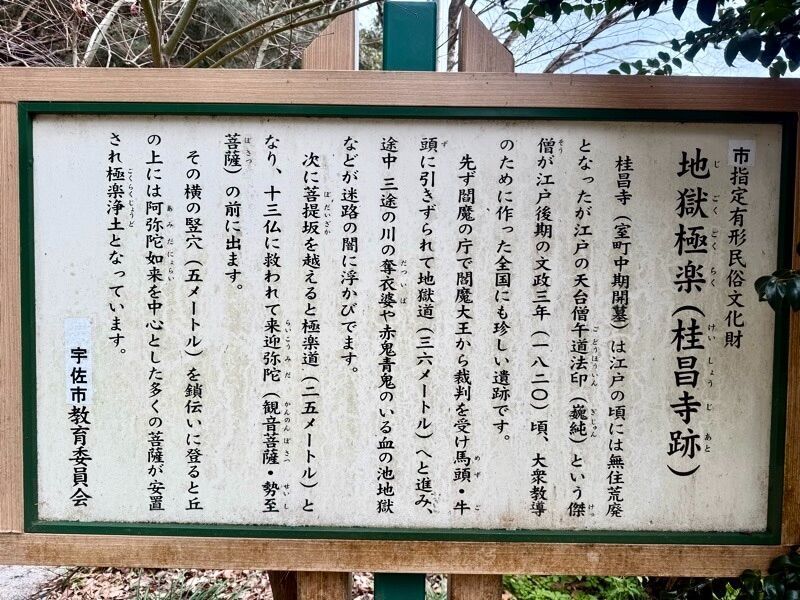 市指定有形民俗文化財
地獄極楽(桂昌寺跡)
桂昌寺(室町中期開墓)は江戸の頃には無住荒廃
となったが江戸の天台僧午道法印(巍純)という傑
僧が江戸後期の文政三年(一八二〇)頃、大衆教導
のために作った全国にも珍しい遺跡です。
先ず閻魔の庁で閻魔大王から裁判を受け馬頭・牛
頭に引きずられて地獄道(三六メートル)へと進み、
途中 三途の川の奪衣婆や赤鬼青鬼のいる血の池地獄
などが迷路の闇に浮かびでます。
次に菩提坂を越えると極楽道(二五メートル)と
なり、十三仏に救われて来迎弥陀(観音菩薩・勢至
菩薩)の前に出ます。
その横の竪穴(五メートル)を鎖伝いに登ると丘
の上には阿弥陀如来を中心とした多くの菩薩が安置
され極楽浄土となっています。
宇佐市教育委員会